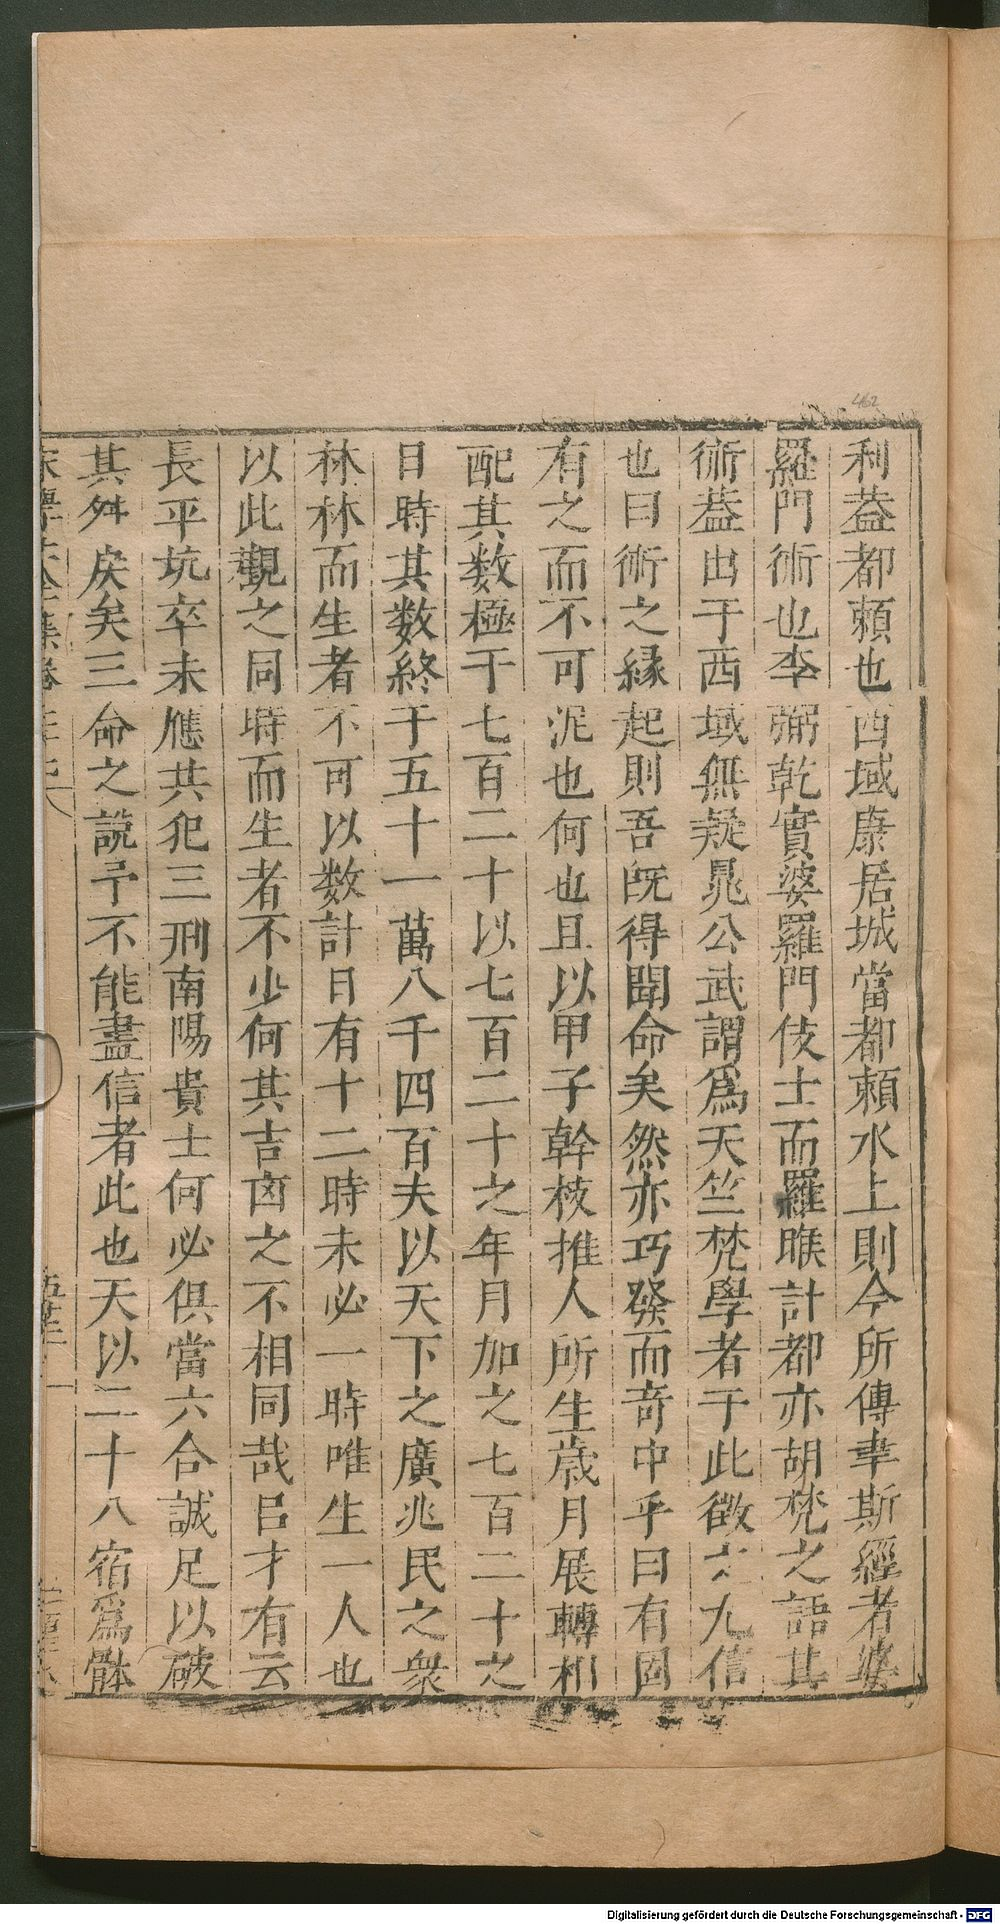 462
利葢都頼也西域康居城當都頼水上則今所傳聿斯經者婆
羅門術也李弼乾實婆羅門伎士而羅睺計都亦胡梵之語其
術葢出于西域無疑晁公武謂爲天竺梵學者于此徵之尤信
也曰術之縁起則吾旣得聞命矣然亦巧發而竒中乎曰有固
有之而不可泥也何也且以甲子幹枝推人所生歳月展轉相
配其数極于七百二十以七百二十之年月加之七百二十之
日時其数終于五十一萬八千四百夫以天下之廣兆民之衆
林林而生者不可以数計日有十二時未必一時唯生一人也
以此觀之同時而生者不少何其吉凶之不相同哉吕才有云
長平坑卒未應共犯三刑南陽貴士何必俱當六合誠足以破
其舛戾矣三命之説予不能盡信者此也天以二十八宿爲骵
Digitalisierung gefördert durch die Deutsche Forschungsgemeinschaft - DFG